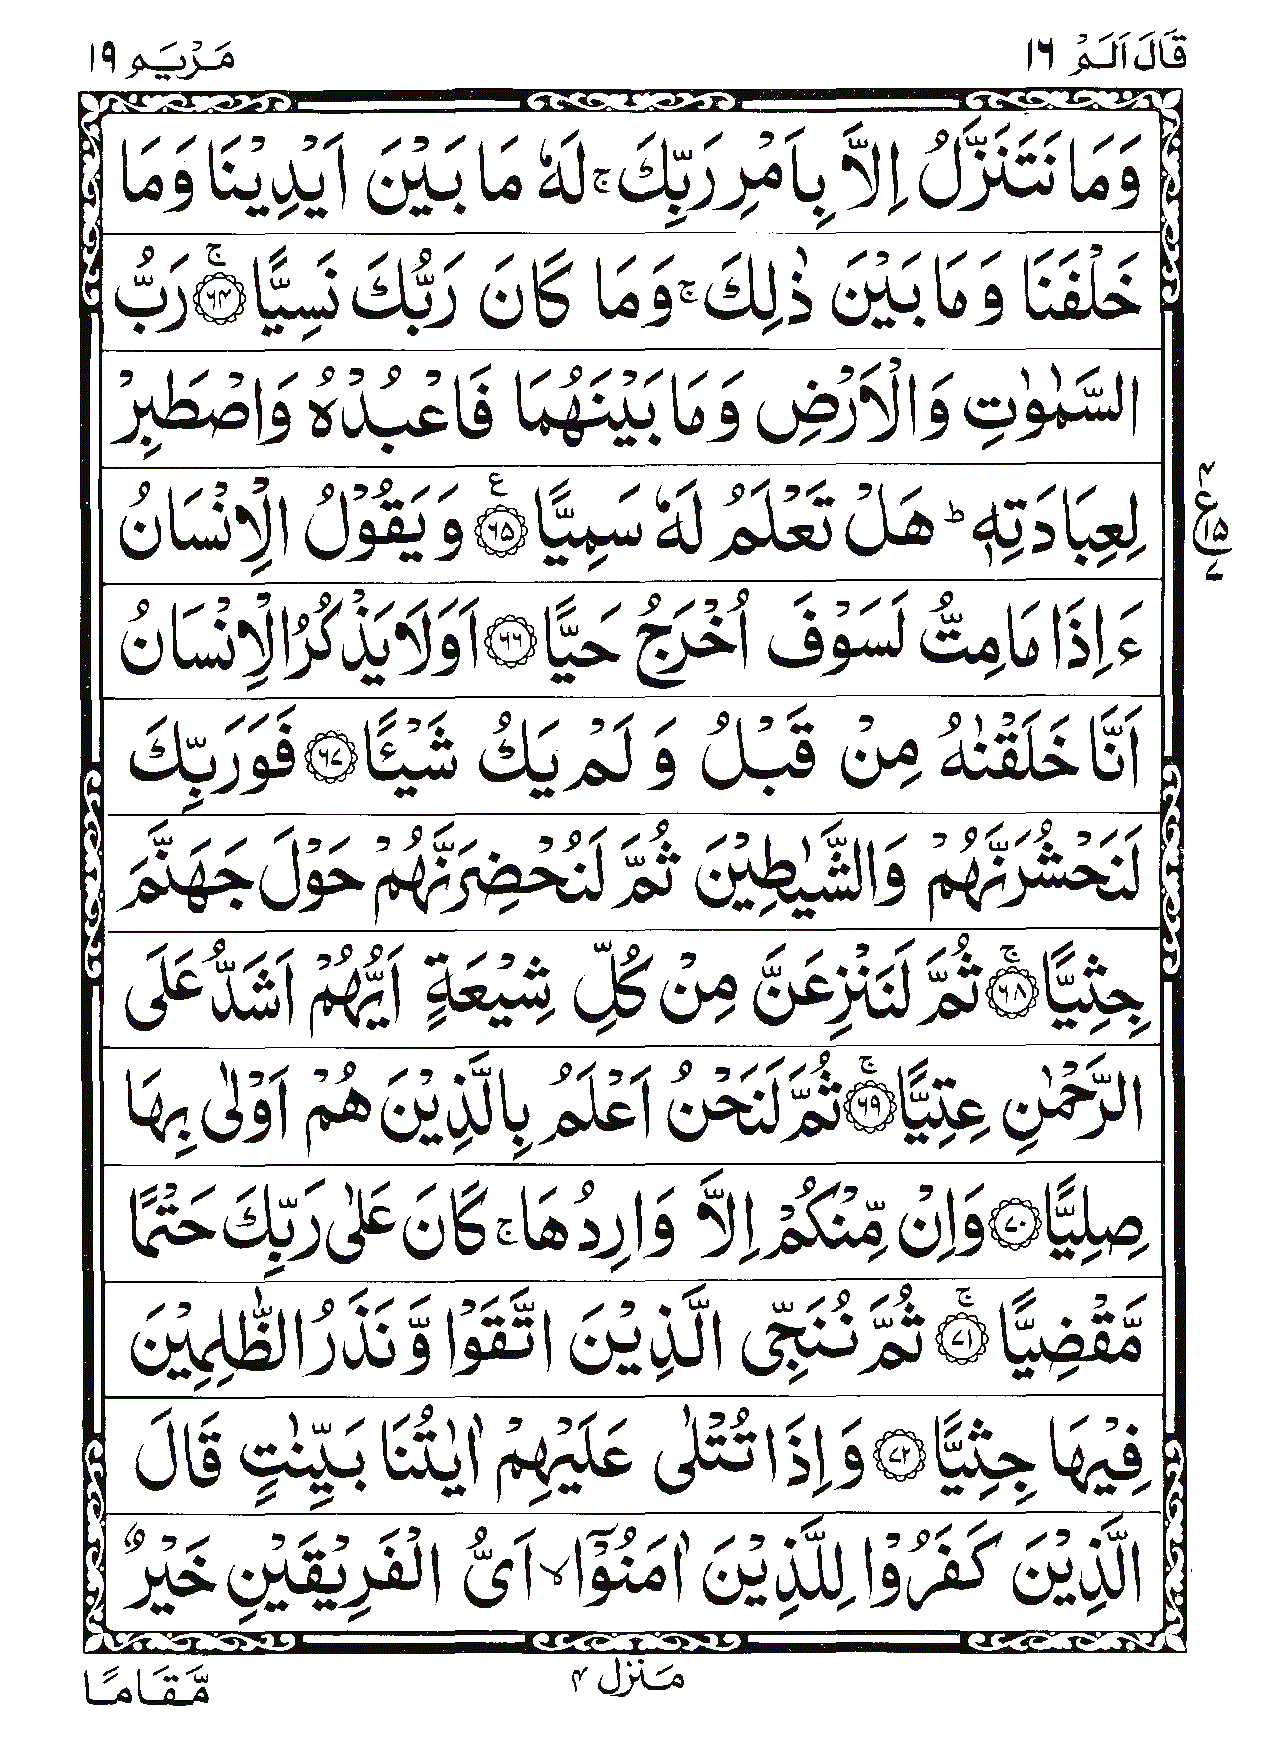 قَالَ اَلَمْ ١٦
مَرْيَم ١٩
وَمَا نَتَنَزَّلُ اِلَّا بِاَمْرِ رَبِّكَ ۚ لَهٗ مَا بَيْنَ اَيْدِيْنَا وَمَا
خَلْفَنَا وَمَا بَيْنَ ذٰلِكَ ۚ وَمَا كَانَ رَبُّكَ نَسِيًّا ۚ ﴿٦٤﴾ رَبُّ
السَّمٰوٰتِ وَالْاَرْضِ وَمَا بَيْنَهُمَا فَاعْبُدْهُ وَاصْطَبِرْ
لِعِبَادَتِهٖ ؕ هَلْ تَعْلَمُ لَهٗ سَمِيًّا ﴿٦٥﴾ ع وَيَقُوْلُ الْاِنْسَانُ
ءَاِذَا مَا مِتُّ لَسَوْفَ اُخْرَجُ حَيًّا ﴿٦٦﴾ اَوَلَا يَذْكُرُ الْاِنْسَانُ
اَنَّا خَلَقْنٰهُ مِنْ قَبْلُ وَلَمْ يَكُ شَيْـًٔا ﴿٦٧﴾ فَوَرَبِّكَ
لَنَحْشُرَنَّهُمْ وَالشَّيٰطِيْنَ ثُمَّ لَنُحْضِرَنَّهُمْ حَوْلَ جَهَنَّمَ
جِثِيًّا ۚ ﴿٦٨﴾ ثُمَّ لَنَنْزِعَنَّ مِنْ كُلِّ شِيْعَةٍ اَيُّهُمْ اَشَدُّ عَلَى
الرَّحْمٰنِ عِتِيًّا ۚ ﴿٦٩﴾ ثُمَّ لَنَحْنُ اَعْلَمُ بِالَّذِيْنَ هُمْ اَوْلٰى بِهَا
صِلِيًّا ﴿٧٠﴾ وَاِنْ مِّنْكُمْ اِلَّا وَارِدُهَا ۚ كَانَ عَلٰى رَبِّكَ حَتْمًا
مَّقْضِيًّا ۚ ﴿٧١﴾ ثُمَّ نُنَجِّى الَّذِيْنَ اتَّقَوْا وَّنَذَرُ الظّٰلِمِيْنَ
فِيْهَا جِثِيًّا ﴿٧٢﴾ وَاِذَا تُتْلٰى عَلَيْهِمْ اٰيٰتُنَا بَيِّنٰتٍ قَالَ
الَّذِيْنَ كَفَرُوْا لِلَّذِيْنَ اٰمَنُوْٓا ۙ اَىُّ الْفَرِيْقَيْنِ خَيْرٌ
٤
ع
١٥
٧
مَنزل ٤
مَّقَامًا